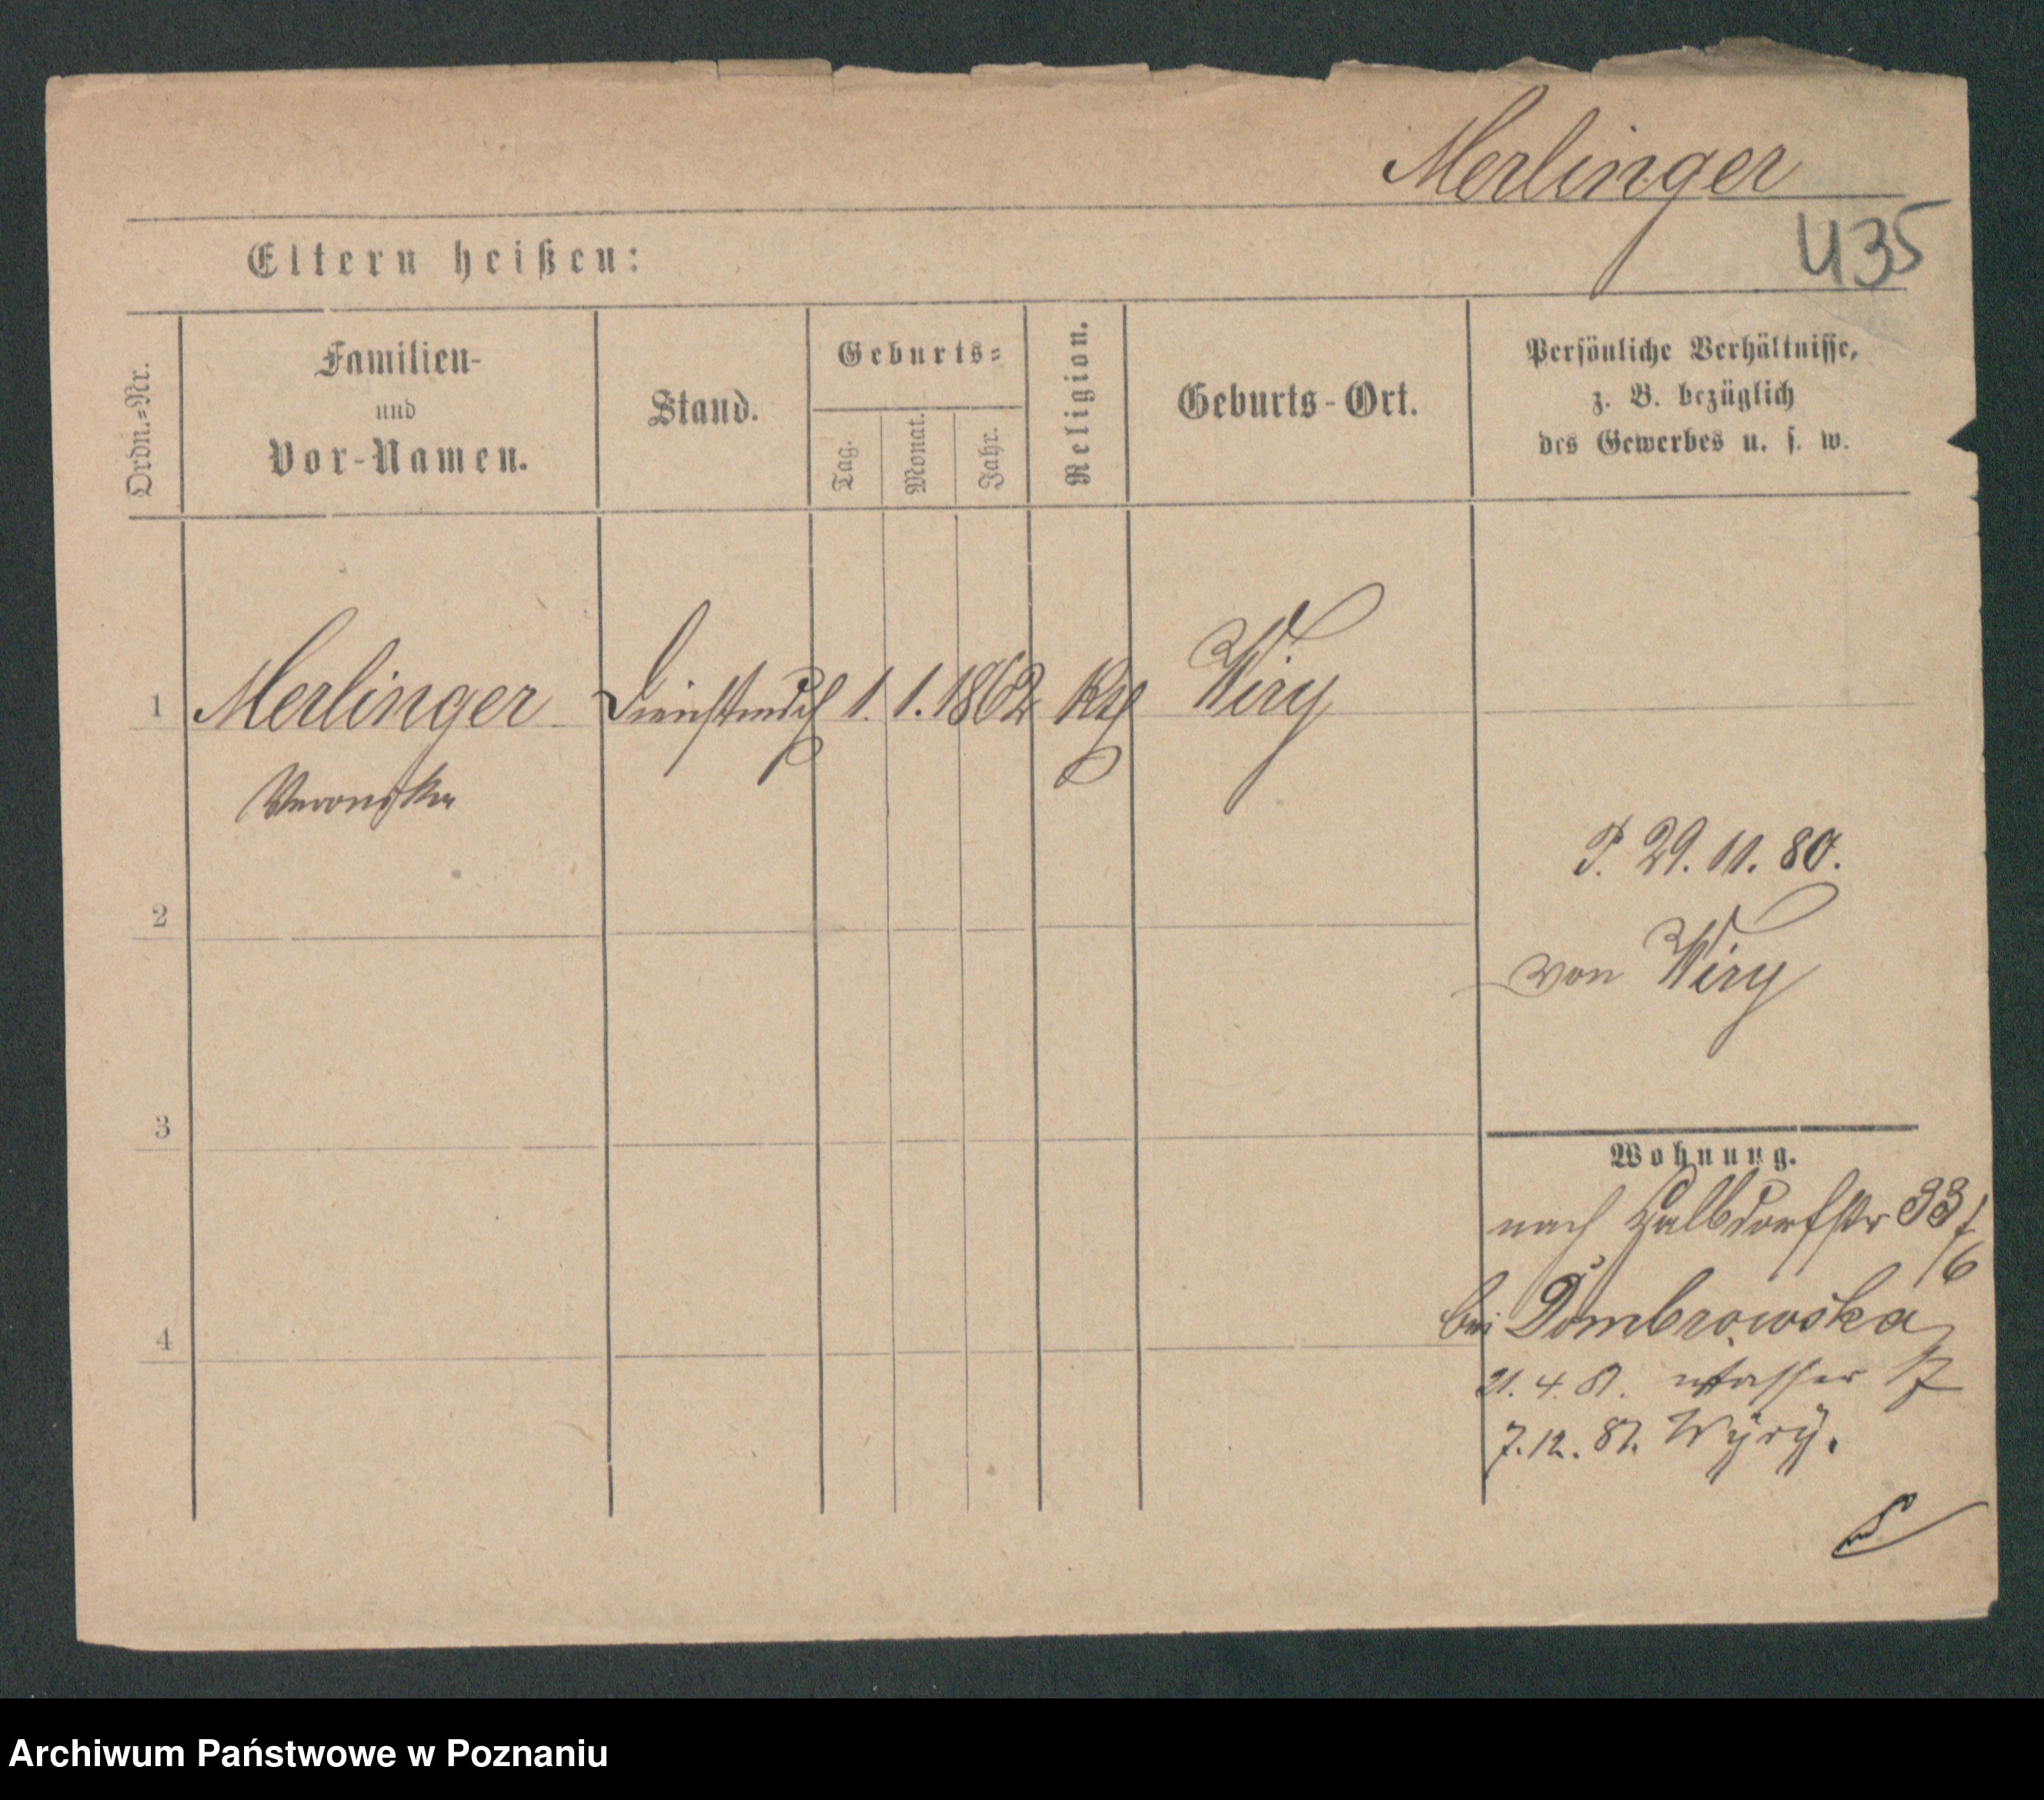 Merlinger
435
Eltern heißen:
Ordn.=Nr.
Familien-
und
Vor-Namen.
Stand.
Geburts=
Tag.
Monat.
Jahr.
Religion.
Geburts-Ort.
Persönliche Verhältnisse,
z. B. bezüglich
des Gewerbes u. s. w.
1 Merlinger Dienstmdch 1. 1. 1862 Kth Wiry
Veronika
P. 29. 11. 80.
2
von Wiry
3
Wohnung.
nach Halbdorfstr 33
/6
bei Dombrowska
4
21. 4. 81. Wasser 17
7. 12. 81. Wyry.
Archiwum Państwowe w Poznaniu